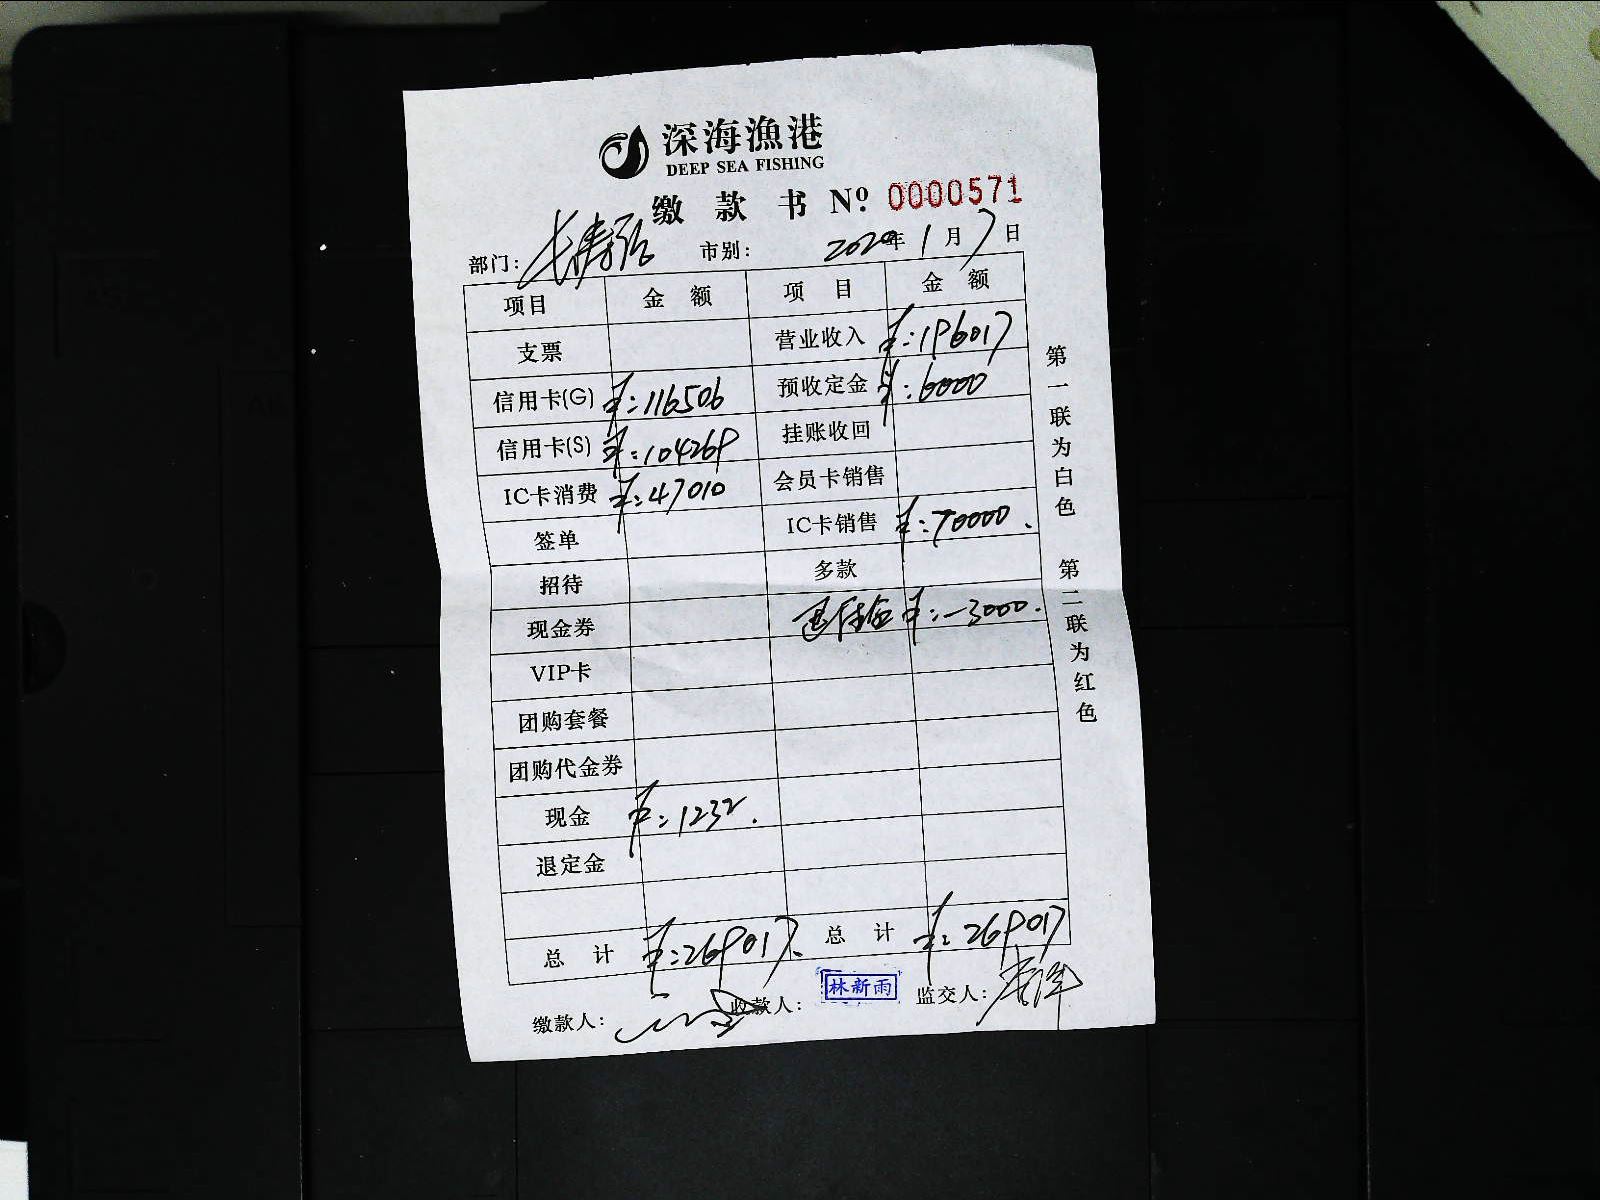 深海漁港
DEEP SEA FISHING
缴 款 书 Nº 0000571
部门: 长寿路 市别: 2020年 1月 7日
项目 金 额 项 目 金 额
支票 营业收入 ¥:196017
信用卡(G) ¥:116506 预收定金 ¥:6000
信用卡(S) ¥:104269 挂账收回
IC卡消费 ¥:47010 会员卡销售
签单 IC卡销售 ¥:70000.
招待 多款
现金券 ¥:-3000.
VIP卡
团购套餐
团购代金券
现金 ¥:1232.
退定金
总 计 ¥:269017. 总 计 ¥:269017
缴款人: 收款人: 林新雨 监交人:
第一联为白色 第二联为红色